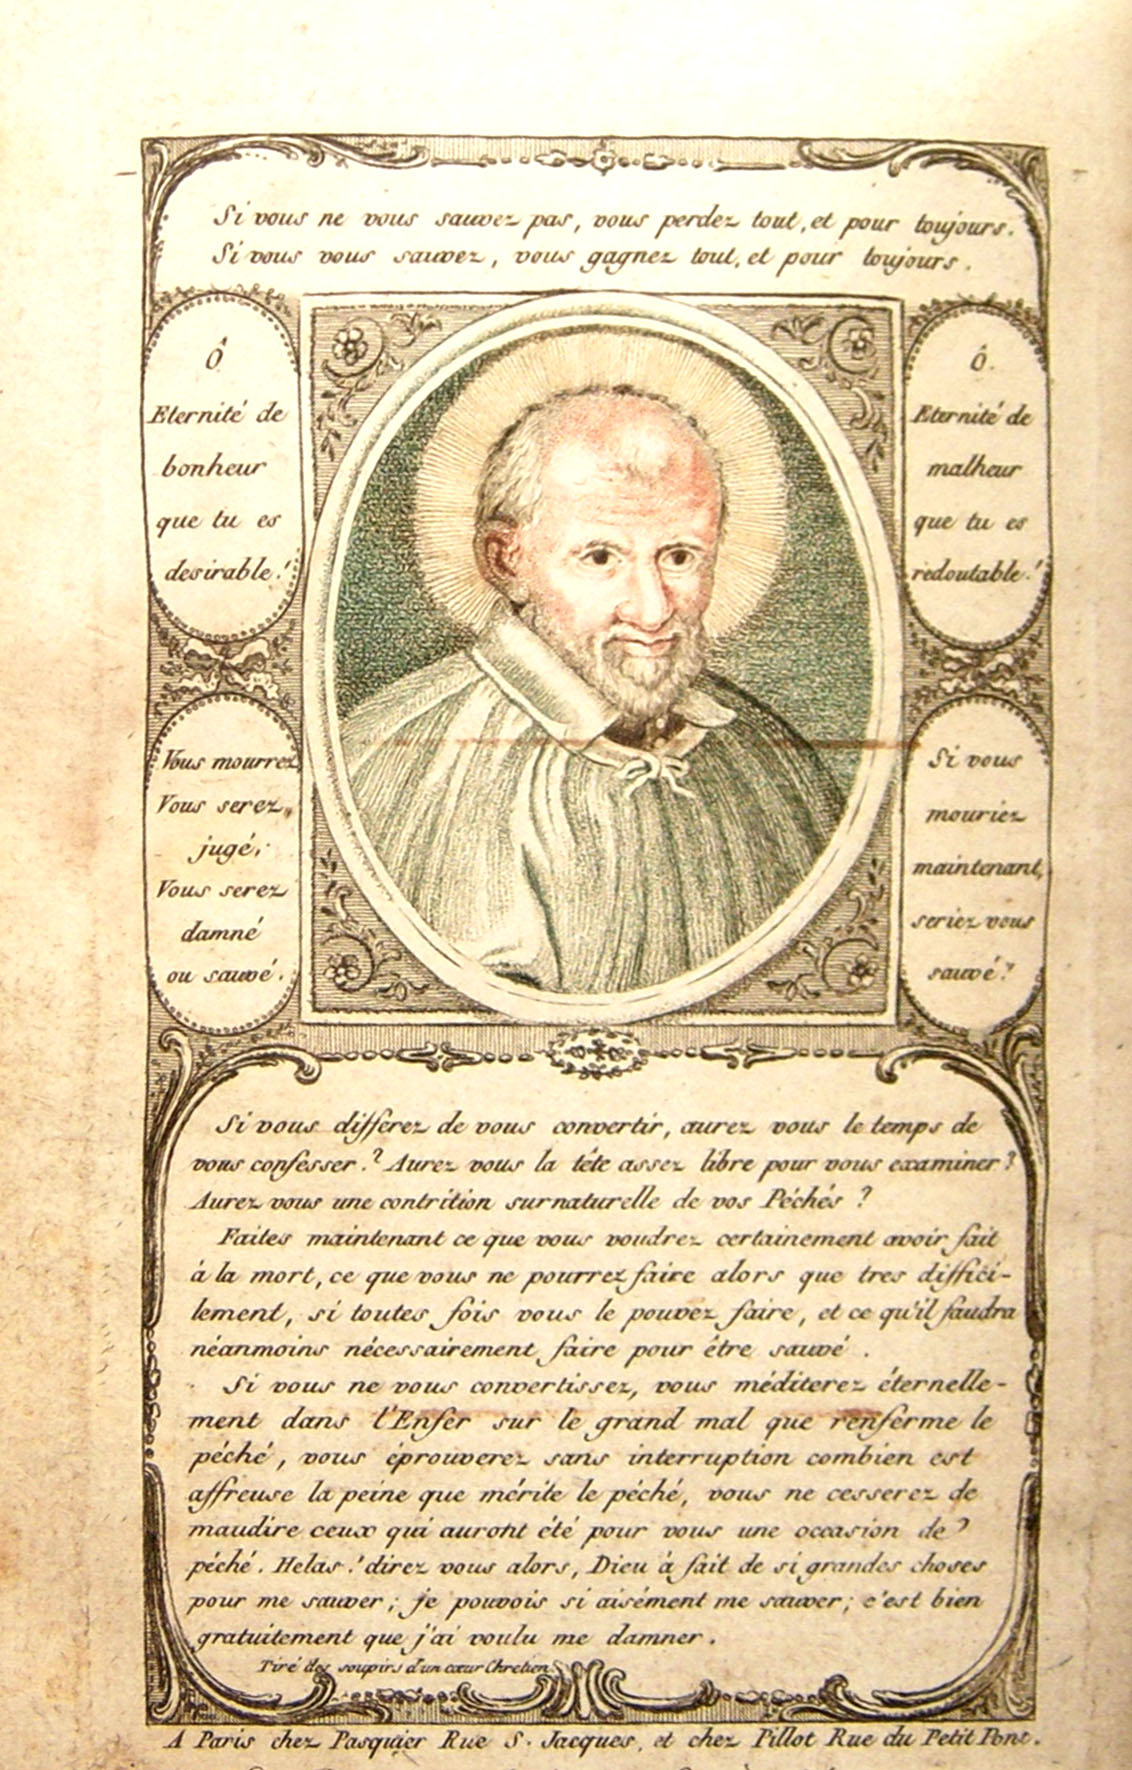 Si vous ne vous sauvez pas, vous perdez tout, et pour toujours.
Si vous vous sauvez, vous gagnez tout, et pour toujours.
Ô
Eternité de
bonheur
que tu es
desirable!
Ô
Eternité de
malheur
que tu es
redoutable!
Vous mourrez
Vous serez
jugé,
Vous serez
damné
ou sauvé.
Si vous
mouriez
maintenant,
seriez vous
sauvé?
Si vous differez de vous convertir, aurez vous le temps de
vous confesser? Aurez vous la tête assez libre pour vous examiner?
Aurez vous une contrition surnaturelle de vos Péchés?
Faites maintenant ce que vous voudrez certainement avoir fait
à la mort, ce que vous ne pourrez faire alors que tres diffici-
lement, si toutes fois vous le pouvez faire, et ce qu'il faudra
néanmoins nécessairement faire pour être sauvé.
Si vous ne vous convertissez, vous méditerez éternelle-
ment dans l'Enfer sur le grand mal que renferme le
péché, vous éprouverez sans interruption combien est
affreuse la peine que mérite le péché, vous ne cesserez de
maudire ceux qui auront été pour vous une occasion de
péché. Helas! direz vous alors, Dieu à fait de si grandes choses
pour me sauver; je pouvois si aisément me sauver; c'est bien
gratuitement que j'ai voulu me damner.
Tiré des soupirs d'un cœur Chretien
A Paris chez Pasquier Rue S. Jacques, et chez Pillot Rue du Petit Pont.